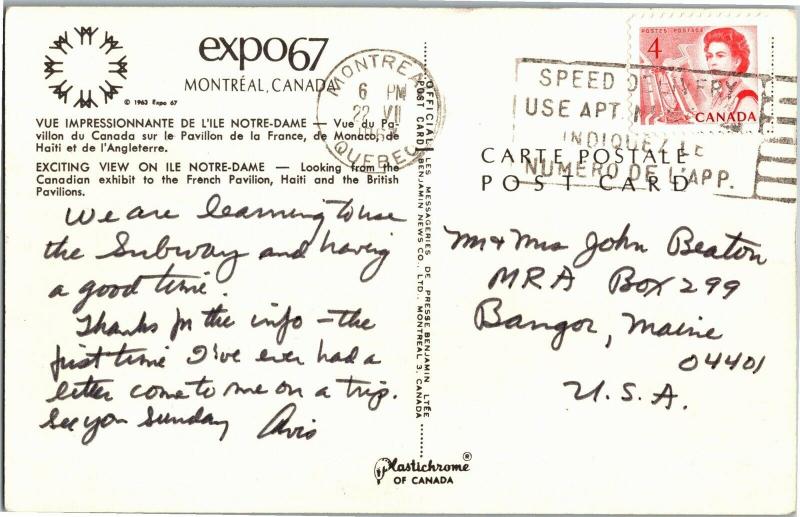 expo67
MONTRÉAL, CANADA
© 1963 Expo 67
VUE IMPRESSIONNANTE DE L'ILE NOTRE-DAME — Vue du Pa-
villon du Canada sur le Pavillon de la France, de Monaco, de
Haiti et de l'Angleterre.
EXCITING VIEW ON ILE NOTRE-DAME — Looking from the
Canadian exhibit to the French Pavilion, Haiti and the British
Pavilions.
We are learning to use
the Subway and having
a good time.
Thanks for the info – the
first time I've ever had a
letter come to me on a trip.
See you Sunday Avis
MONTREAL
6 PM
22 VII
QUEBEC
OFFICIAL LES MESSAGERIES DE PRESSE BENJAMIN LTÉE
POST CARD BENJAMIN NEWS CO., LTD., MONTREAL 3, CANADA
Plastichrome®
OF CANADA
POSTES POSTAGE
4
CANADA
SPEED DELIVERY
USE APT.
INDIQUEZ LE
NUMERO DE L'APP.
CARTE POSTALE
POST CARD
Mr & Mrs John Beaton
MRA Box 299
Bangor, Maine
04401
U.S.A.